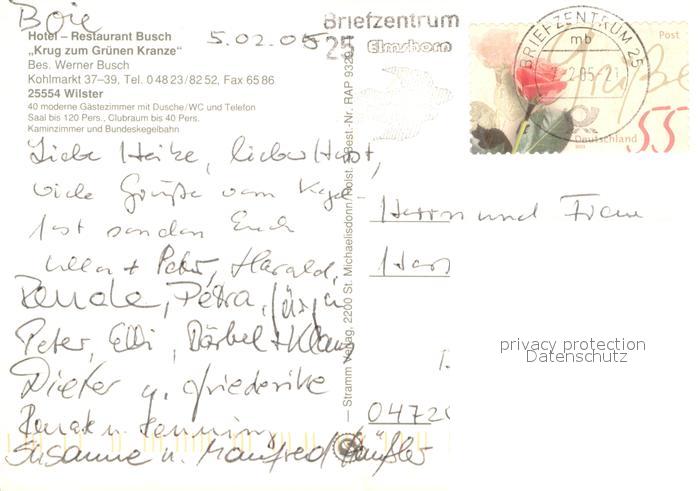 Boie
Hotel – Restaurant Busch
„Krug zum Grünen Kranze"
Bes. Werner Busch
Kohlmarkt 37–39, Tel. 0 48 23 / 82 52, Fax 65 86
25554 Wilster
40 moderne Gästezimmer mit Dusche/WC und Telefon
Saal bis 120 Pers., Clubraum bis 40 Pers.
Kaminzimmer und Bundeskegelbahn
5.02.05
Liebe Heike, lieber Horst,
viele Grüße vom Kegel-
fest senden Euch
+ Peter, Harald,
Renate, Petra, Jürgen
Peter, Elli, Bärbel + Klaus
Dieter u. Friederike
Renate u. Henning
Susanne u. Manfred
— Stramm Verlag, 2200 St. Michaelisdonn/Holst. – Best.-Nr. RAP 9329
Briefzentrum
25 Elmshorn
BRIEFZENTRUM 25
mb
2.05-21
Post
Grüße
Deutschland
55
Herrn und Frau
Hors
privacy protection
Datenschutz
04720